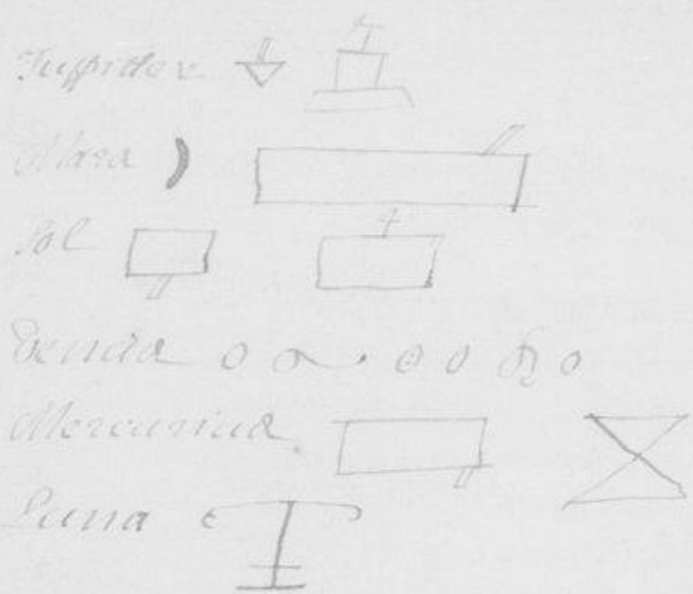 Juppiter
Mars
Sol
Venus
Mercurius
Luna